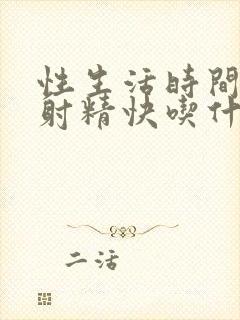 性生活時間
射精快喫什
二活